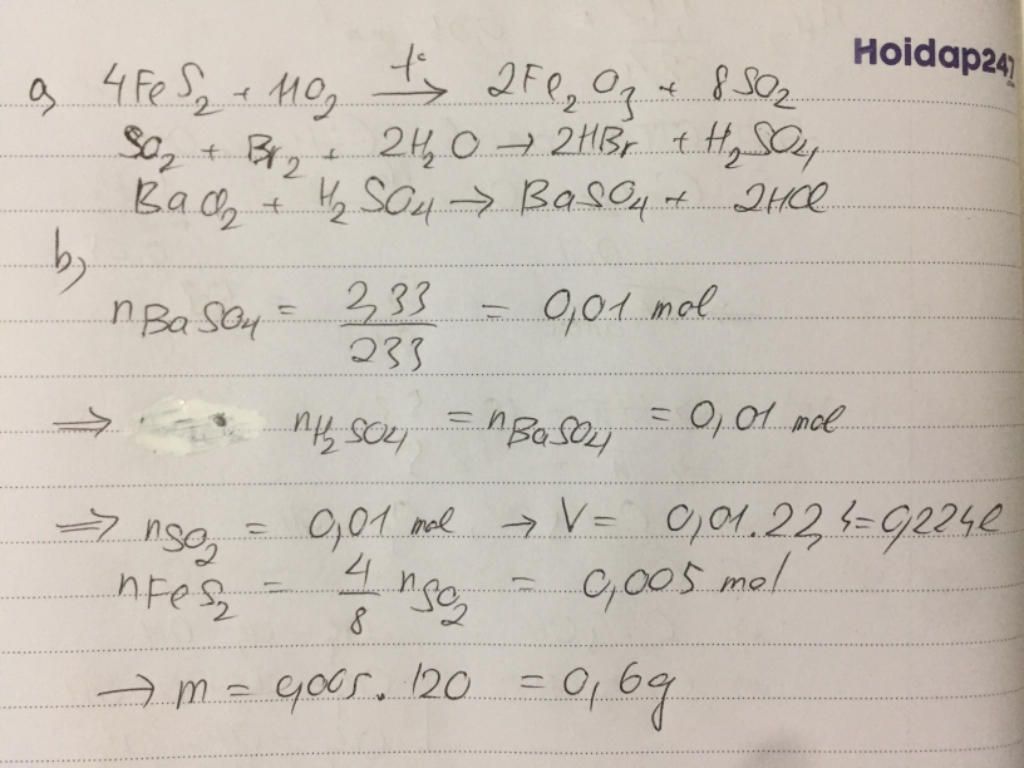 Hoidap247
a, 4FeS₂ + 11O₂ —t°→ 2Fe₂O₃ + 8SO₂
SO₂ + Br₂ + 2H₂O → 2HBr + H₂SO₄
BaCl₂ + H₂SO₄ → BaSO₄ + 2HCl
b,
nBaSO₄ = 2,33/233 = 0,01 mol
⇒ nH₂SO₄ = nBaSO₄ = 0,01 mol
⇒ nSO₂ = 0,01 mol → V = 0,01.22,4=0,224l
nFeS₂ = 4/8 nSO₂ = 0,005 mol
→ m = 0,005.120 = 0,6g